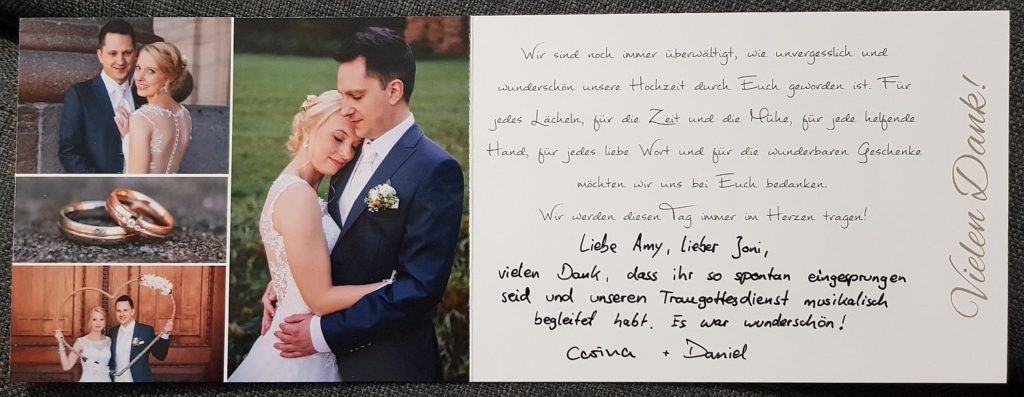 Wir sind noch immer überwältigt, wie unvergesslich und
wunderschön unsere Hochzeit durch Euch geworden ist. Für
jedes Lächeln, für die Zeit und die Mühe, für jede helfende
Hand, für jedes liebe Wort und für die wunderbaren Geschenke
möchten wir uns bei Euch bedanken.
Wir werden diesen Tag immer im Herzen tragen!
Liebe Amy, lieber Joni,
vielen Dank, dass ihr so spontan eingesprungen
seid und unseren Traugottesdienst musikalisch
begleitet habt. Es war wunderschön!
Carina + Daniel
Vielen Dank!